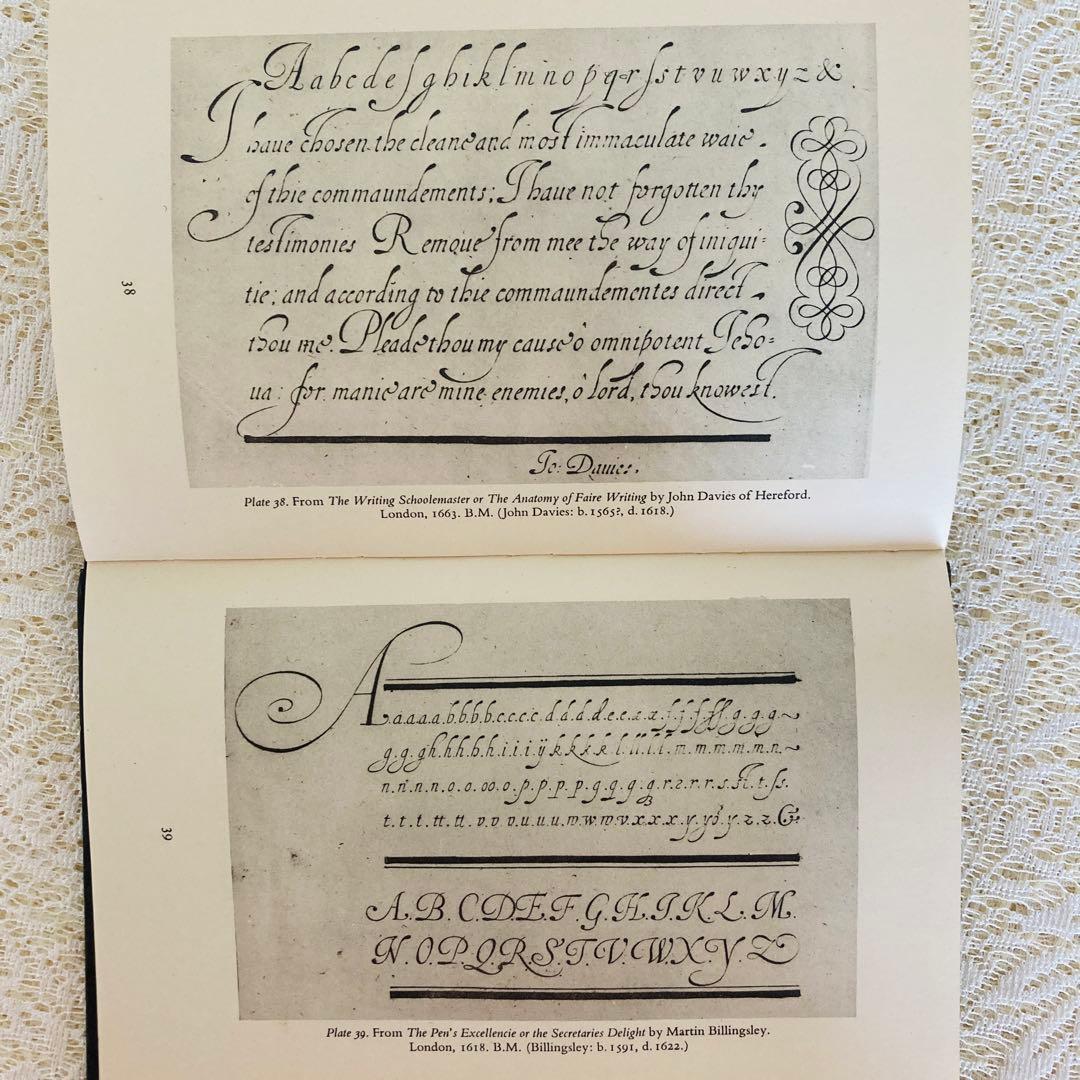 A a b c d e ſ g h i k l m n o p q r ſ s t v u w x y z &
I have chosen the cleane and most immaculate waie.
of thie commaundements; I haue not forgotten thy
testimonies Remoue from mee the way of iniqui=
tie; and according to thie commaundementes direct
thou me. Pleade thou my cause ô omnipotent Jeho=
ua: for manie are mine enemies, ô lord, thou knowest.
Jo: Davies.
38
Plate 38. From The Writing Schoolemaster or The Anatomy of Faire Writing by John Davies of Hereford.
London, 1663. B.M. (John Davies: b. 1565?, d. 1618.)
A.a.a.a.a.b.b.b.b.c.c.c.c.d.d.d.d.e.e.
n.n.n.n.o.o.oo.o.p.p.p.p.q.q.q.q.r.
39
A.B.C.D.E.F.G.H.I.K.L.M.
N.O.P.Q.R.S.T.V.W.X.Y.Z
Plate 39. From The Pen's Excellencie or the Secretaries Delight by Martin Billingsley.
London, 1618. B.M. (Billingsley: b. 1591, d. 1622.)